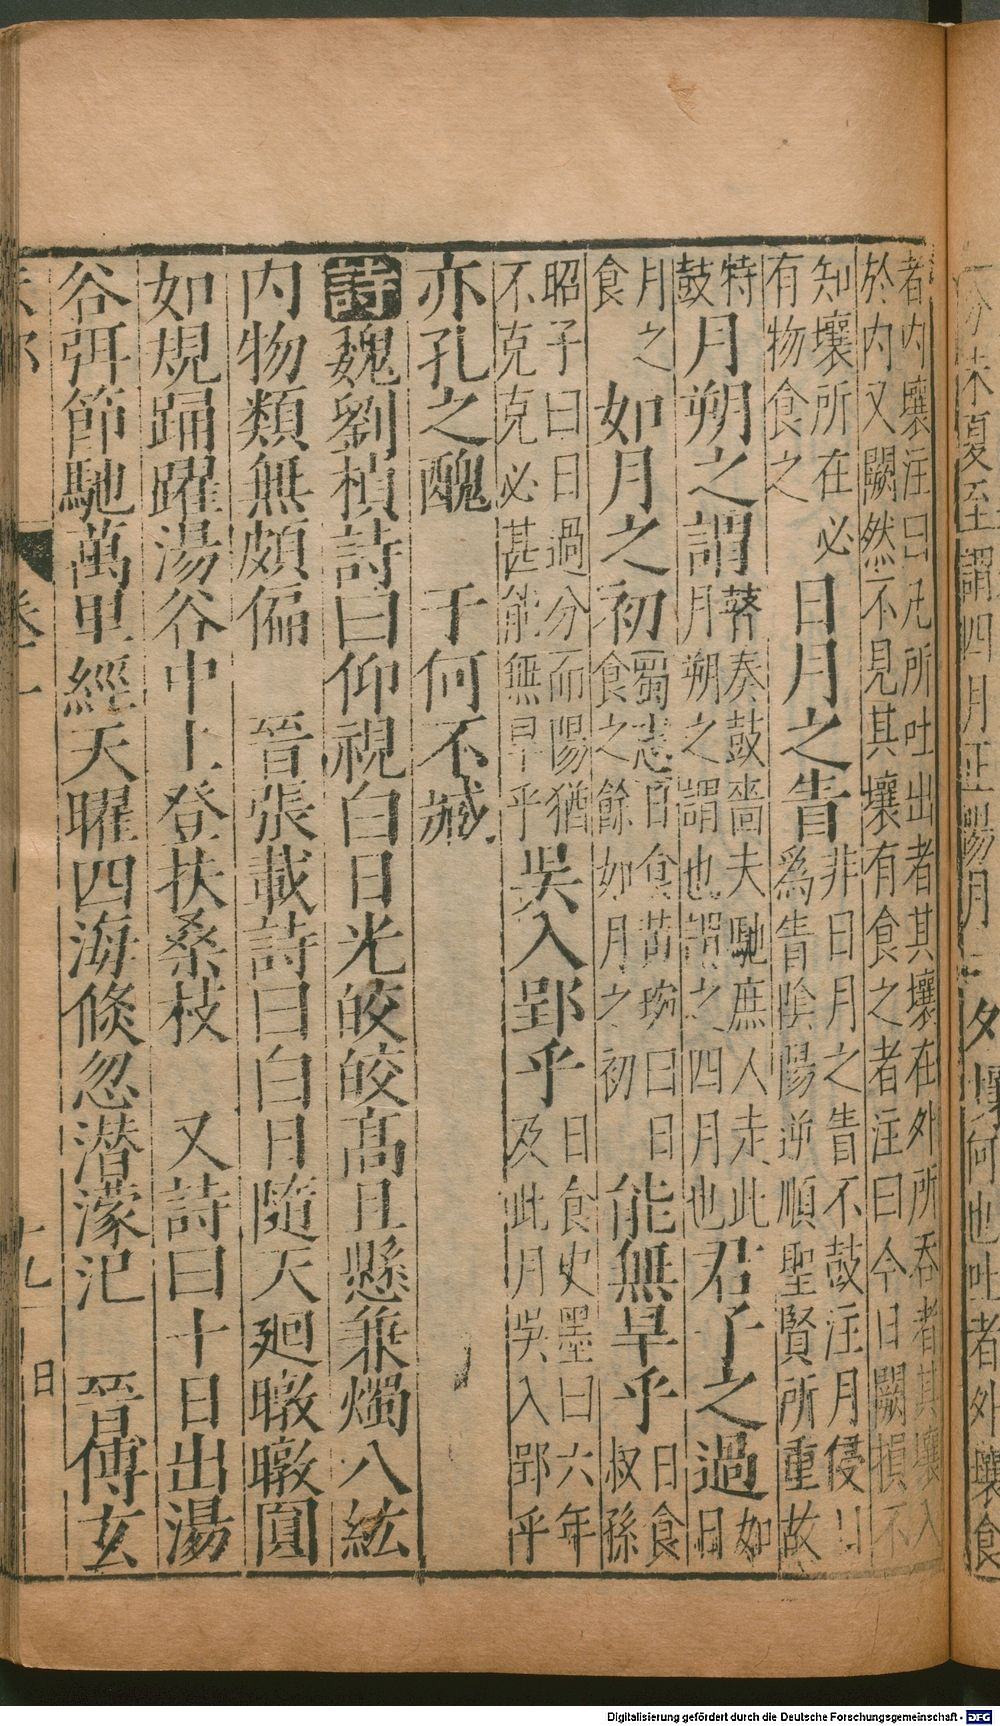 夏至謂四月正陽月 外壤何也吐者外壤食
者內壤注曰凡所吐出者其壤在外所吞者其壤入
於內又闕然不見其壤有食之者注曰今日闕損不
知壤所在必有物食之 日月之眚 非日月之眚不鼓注月侵日爲眚陰陽逆順聖賢所重故
特鼓 月朔之謂 瞽奏鼓嗇夫馳庶人走此月朔之謂也謂之四月也 君子之過 如日
月之食 如月之初 蜀志日食黃琬曰日食之餘如月之初 能無旱乎 日食叔孫
昭子曰日過分而陽猶不克克必甚能無旱乎 吳入郢乎 日食史墨曰六年及此月吳入郢乎
亦孔之醜 于何不臧
詩魏劉楨詩曰仰視白日光皎皎高且懸兼燭八紘
內物類無頗偏 晉張載詩曰白日隨天廻暾暾圓
如規踊躍湯谷中上登扶桑枝 又詩曰十日出湯
谷弭節馳萬里經天曜四海倏忽潜濛汜 晉傅玄
卷一
十九
日
Digitalisierung gefördert durch die Deutsche Forschungsgemeinschaft - DFG